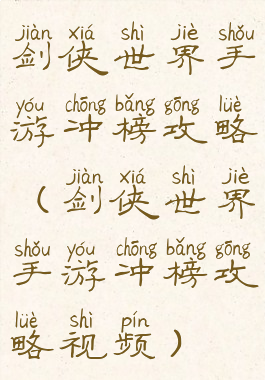 jiàn xiá shì jiè shǒu
剑侠世界手
yóu chōng bǎng gōng lüè
游冲榜攻略
jiàn xiá shì jiè
(剑侠世界
shǒu yóu chōng bǎng gōng
手游冲榜攻
lüè shì pín
略视频)